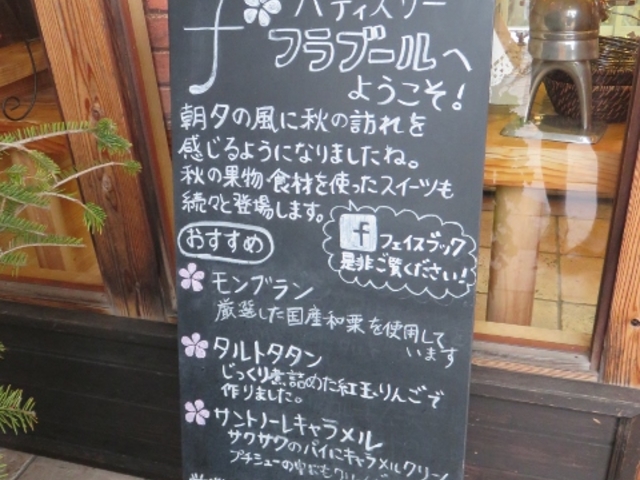 f
パティスリー
フラブールへ
ようこそ!
朝夕の風に秋の訪れを
感じるようになりましたね。
秋の果物・食材を使ったスイーツも
続々と登場します。
f フェイスブック
是非ご覧ください!
おすすめ
モンブラン
厳選した国産和栗を使用して
います
タルトタタン
じっくり煮詰めた紅玉りんごで
作りました。
サントノーレキャラメル
サクサクのパイにキャラメルクリーム
プチシューの